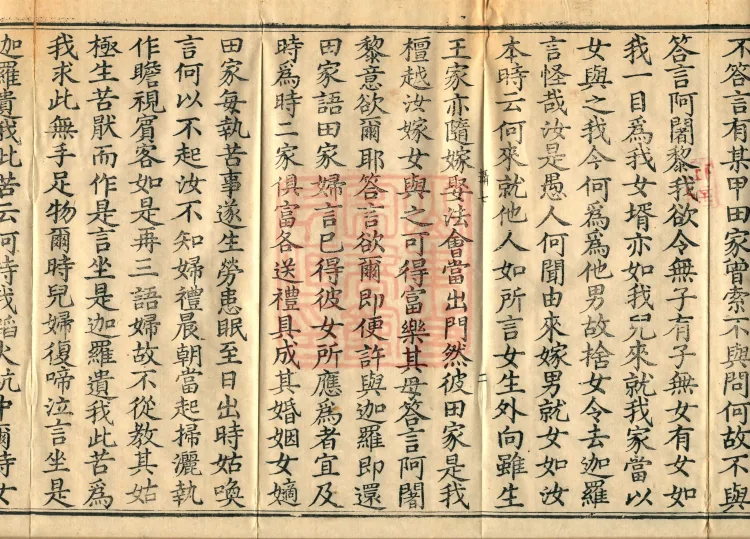 不答言有某甲田家曾索不與問何故不與
答言阿闍黎我欲令無子有子無女有女如
我一目爲我女壻亦如我兒來就我家當以
女與之我今何爲爲他男故捨女令去迦羅
言怪哉汝是愚人何聞由來嫁男就女如汝
本時云何來就他人如所言女生外向雖生
攝七 二
王家亦隨嫁娶法會當出門然彼田家是我
檀越汝嫁女與之可得富樂其母答言阿闍
黎意欲爾耶答言欲爾即便許與迦羅即還
田家語田家婦言已得彼女所應爲者宜及
時爲時二家俱富各送禮具成其婚姻女嫡
田家每執苦事遂生勞患眠至日出時姑喚
言何以不起汝不知婦禮晨朝當起掃灑執
作瞻視賓客如是再三語婦故不從教其姑
極生苦厭而作是言坐是迦羅遺我此苦爲
我求此無手足物爾時兒婦復啼泣言坐是
迦羅遺我此苦云何時我蹈火坑中爾時女